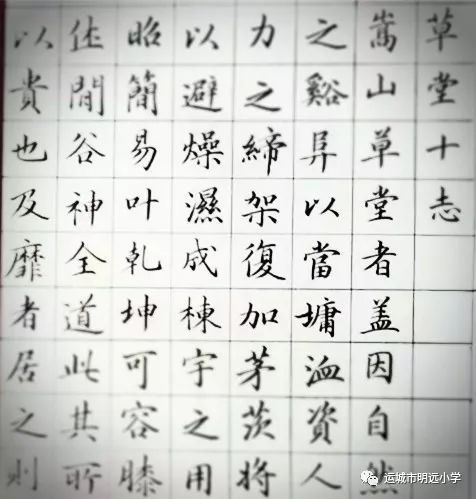 草堂十志
嵩山草堂者盖因自然
之谿阜以當墉洫資人
力之締架復加茅茨將
以避燥濕成棟宇之用
昭簡易叶乾坤可容膝
休閒谷神全道此其所
以貴也及靡者居之則
运城市明远小学